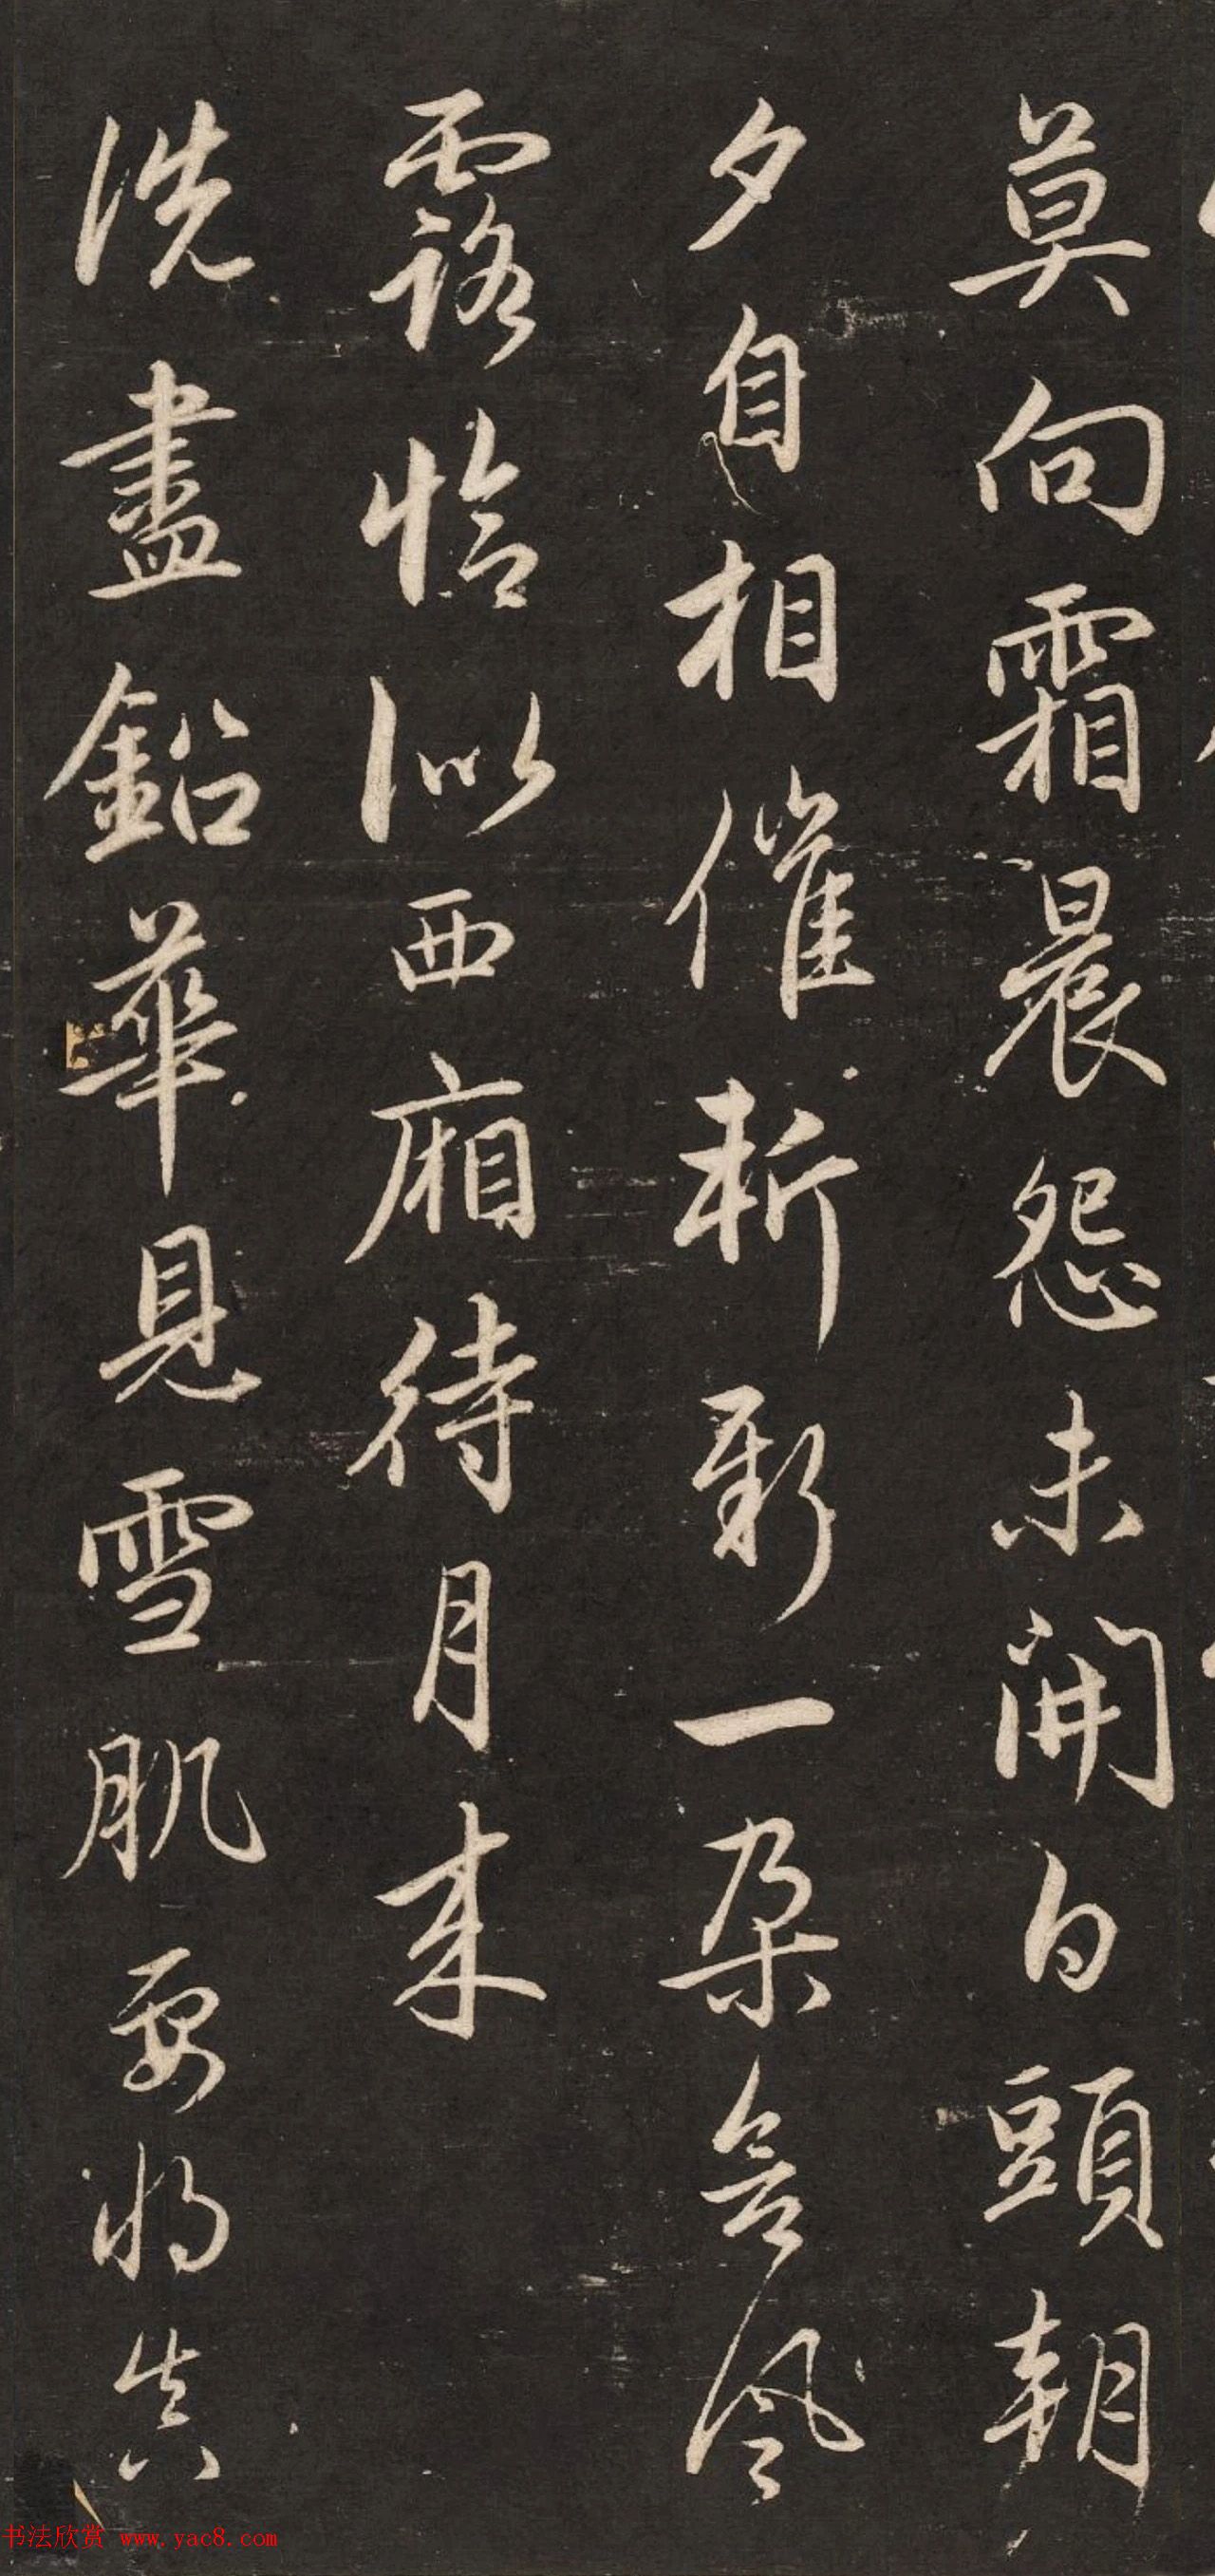 莫向霜晨怨未開白頭朝
夕自相催斬新一朵含風
露恰似西廂待月来
洗盡鉛華見雪肌要将真
书法欣赏 www.yac8.com